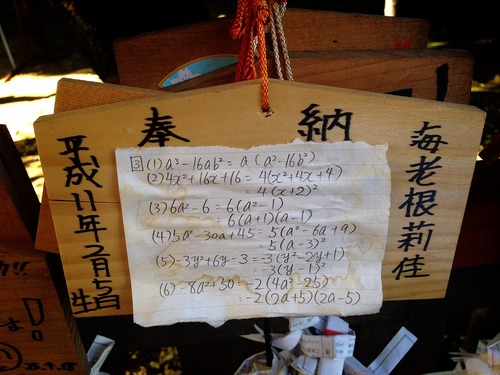 奉 納
海老根莉佳
3 (1) a³-16ab² = a(a²-16b²)
(2) 4x²+16x+16 = 4(x²+4x+4)
= 4(x+2)²
(3) 6a²-6 = 6(a²-1)
= 6(a+1)(a-1)
(4) 5a²-30a+45 = 5(a²-6a+9)
5(a-3)²
(5) -3y²+6y-3 = -3(y²-2y+1)
= -3(y-1)²
(6) -8a²+50 = -2(4a²-25)
= -2(2a+5)(2a-5)
平成11年2月5日
生